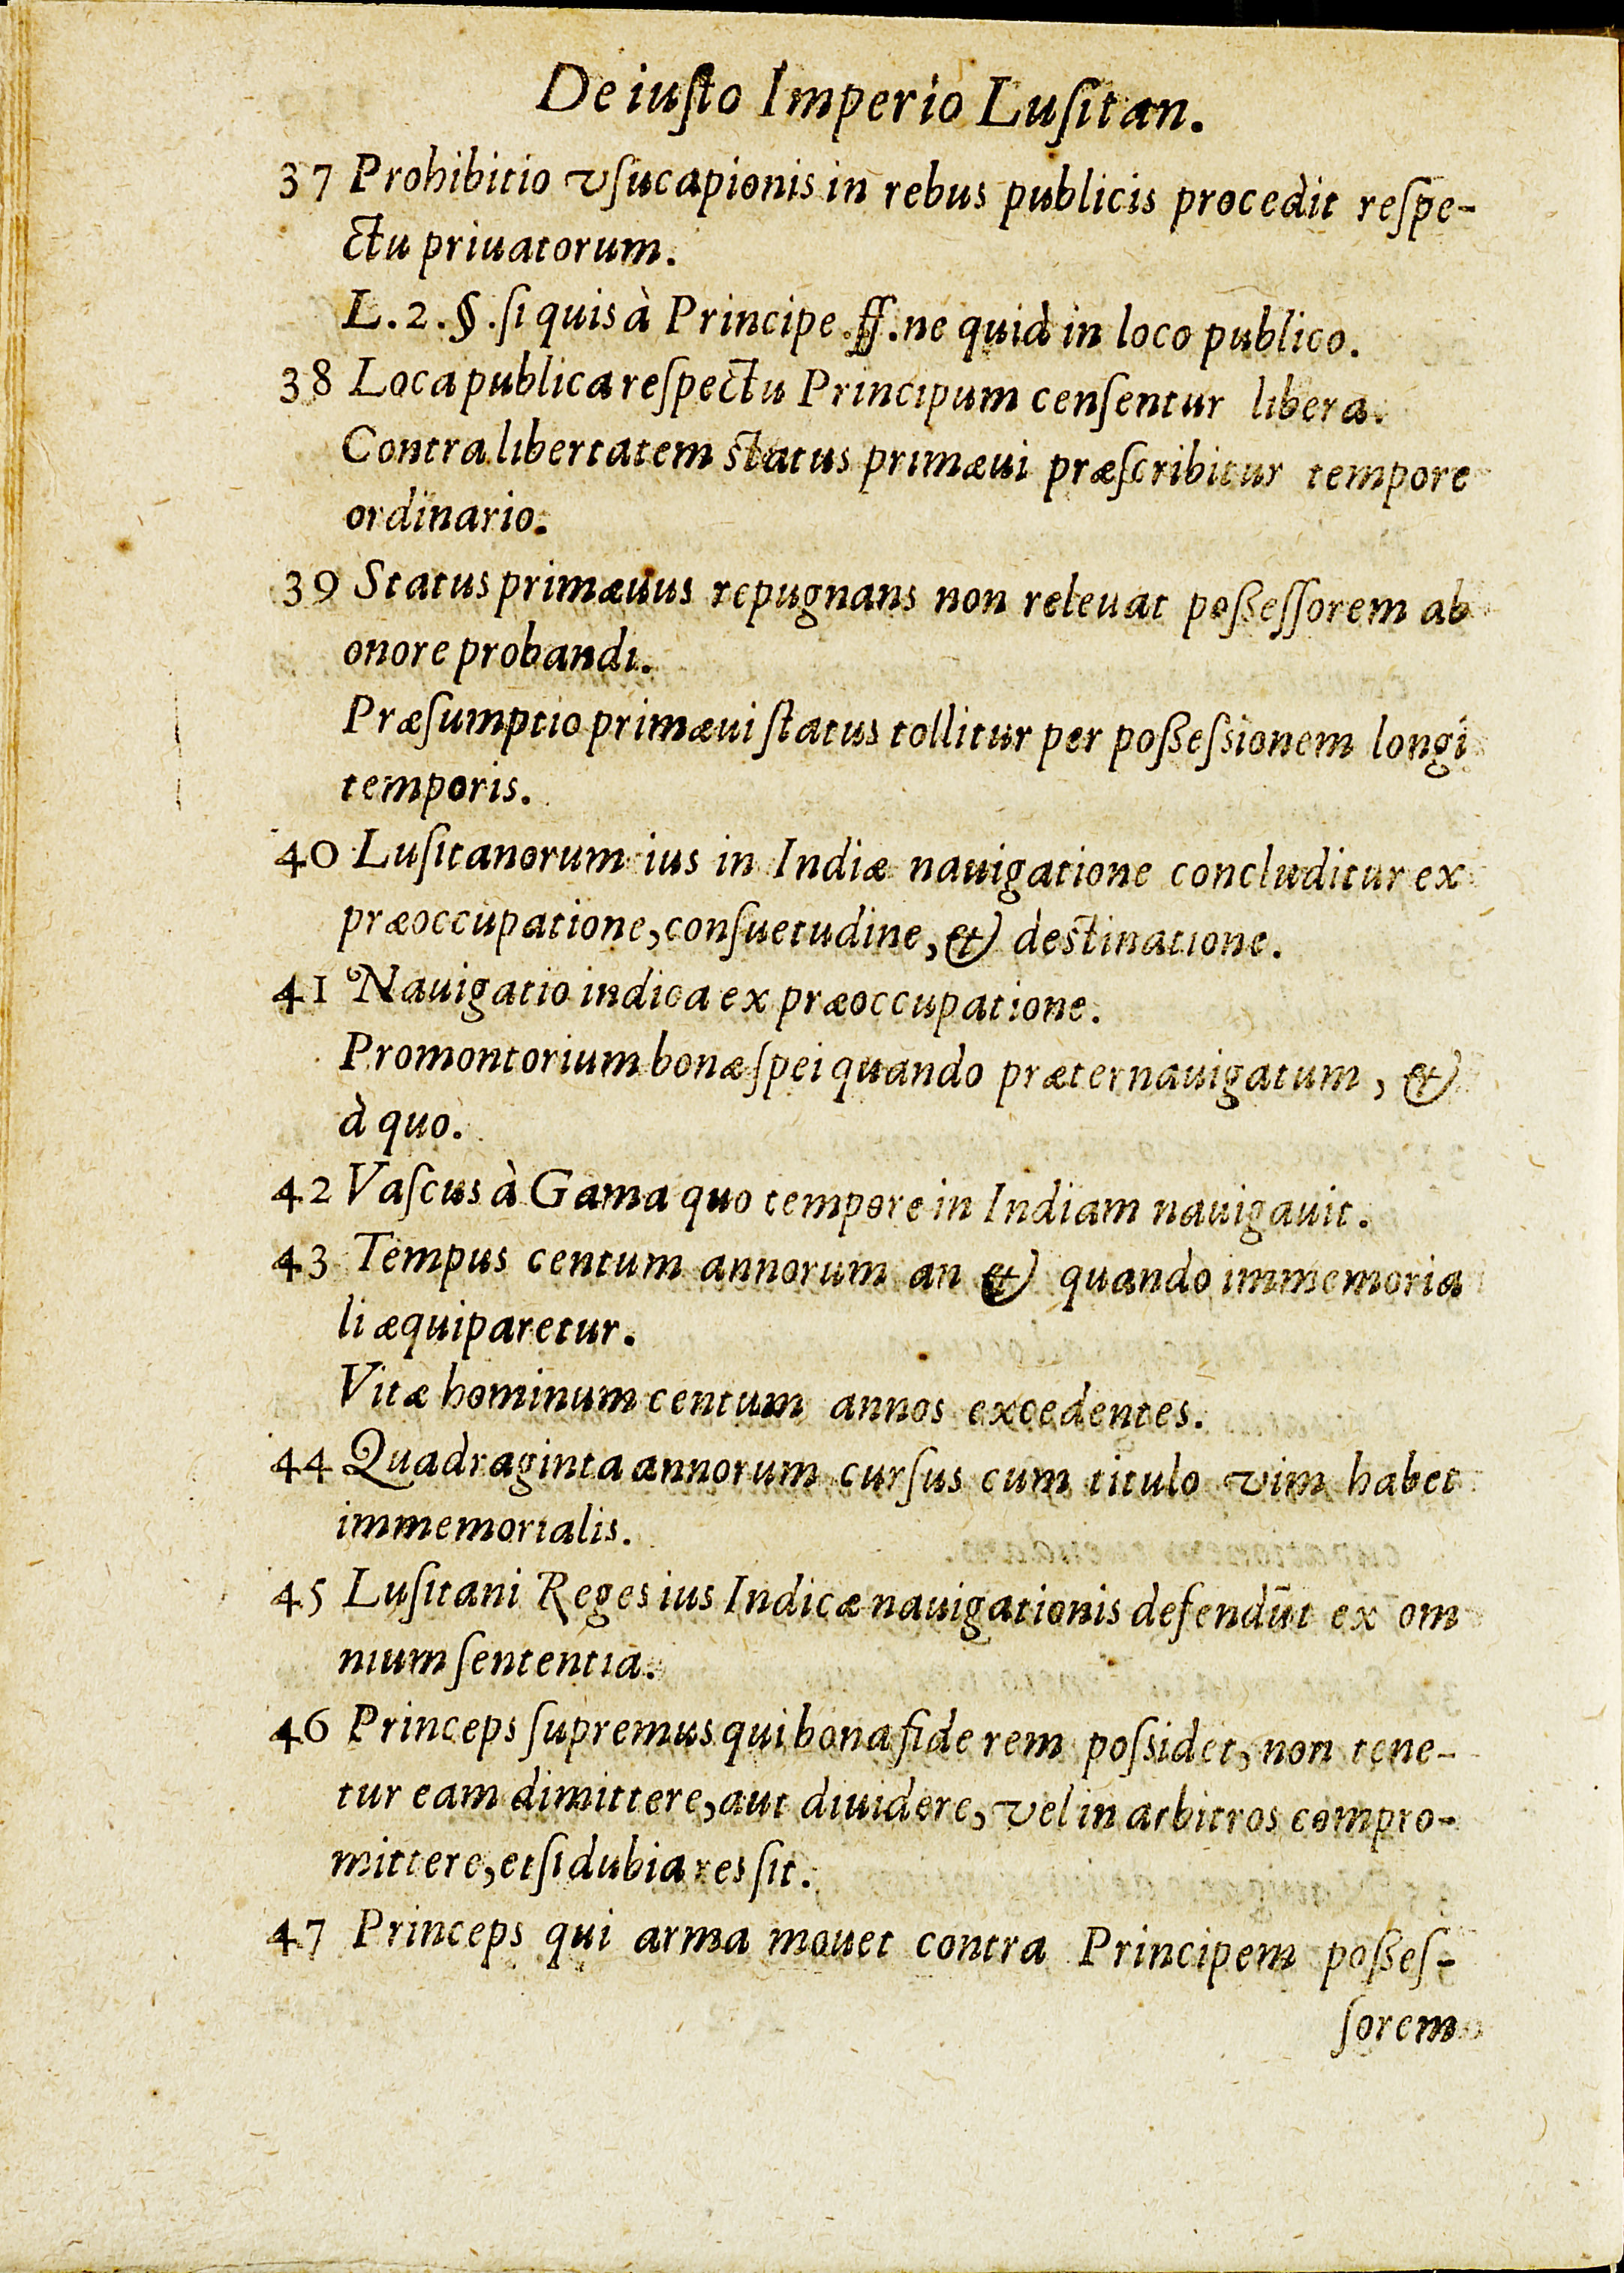 De iuſto Imperio Luſitan.
37 Prohibitio vſucapionis in rebus publicis procedit reſpe-
ctu priuatorum.
L. 2. §. ſi quis à Principe. ff. ne quid in loco publico.
38 Loca publica reſpectu Principum cenſentur libera.
Contra libertatem status primæui præſcribitur tempore
ordinario.
39 Status primæuus repugnans non releuat poßeſſorem ab
onore probandi.
Præſumptio primæui ſtatus tollitur per poßeſsionem longi
temporis.
40 Luſitanorum ius in Indiæ nauigatione concluditur ex
præoccupatione, conſuetudine, & destinatione.
41 Nauigatio indica ex præoccupatione.
Promontorium bonæ ſpei quando præternauigatum, &
à quo.
42 Vaſcus à Gama quo tempore in Indiam nauigauit.
43 Tempus centum annorum an & quando immemoria
li æquiparetur.
Vitæ hominum centum annos excedentes.
44 Quadraginta annorum curſus cum titulo vim habet
immemorialis.
45 Luſitani Reges ius Indicæ nauigationis defendūt ex om
nium ſententia.
46 Princeps ſupremus qui bona fide rem poſsidet, non tene-
tur eam dimittere, aut diuidere, vel in arbitros compro-
mittere, etſi dubia res ſit.
47 Princeps qui arma mouet contra Principem poßeſ-
ſorem